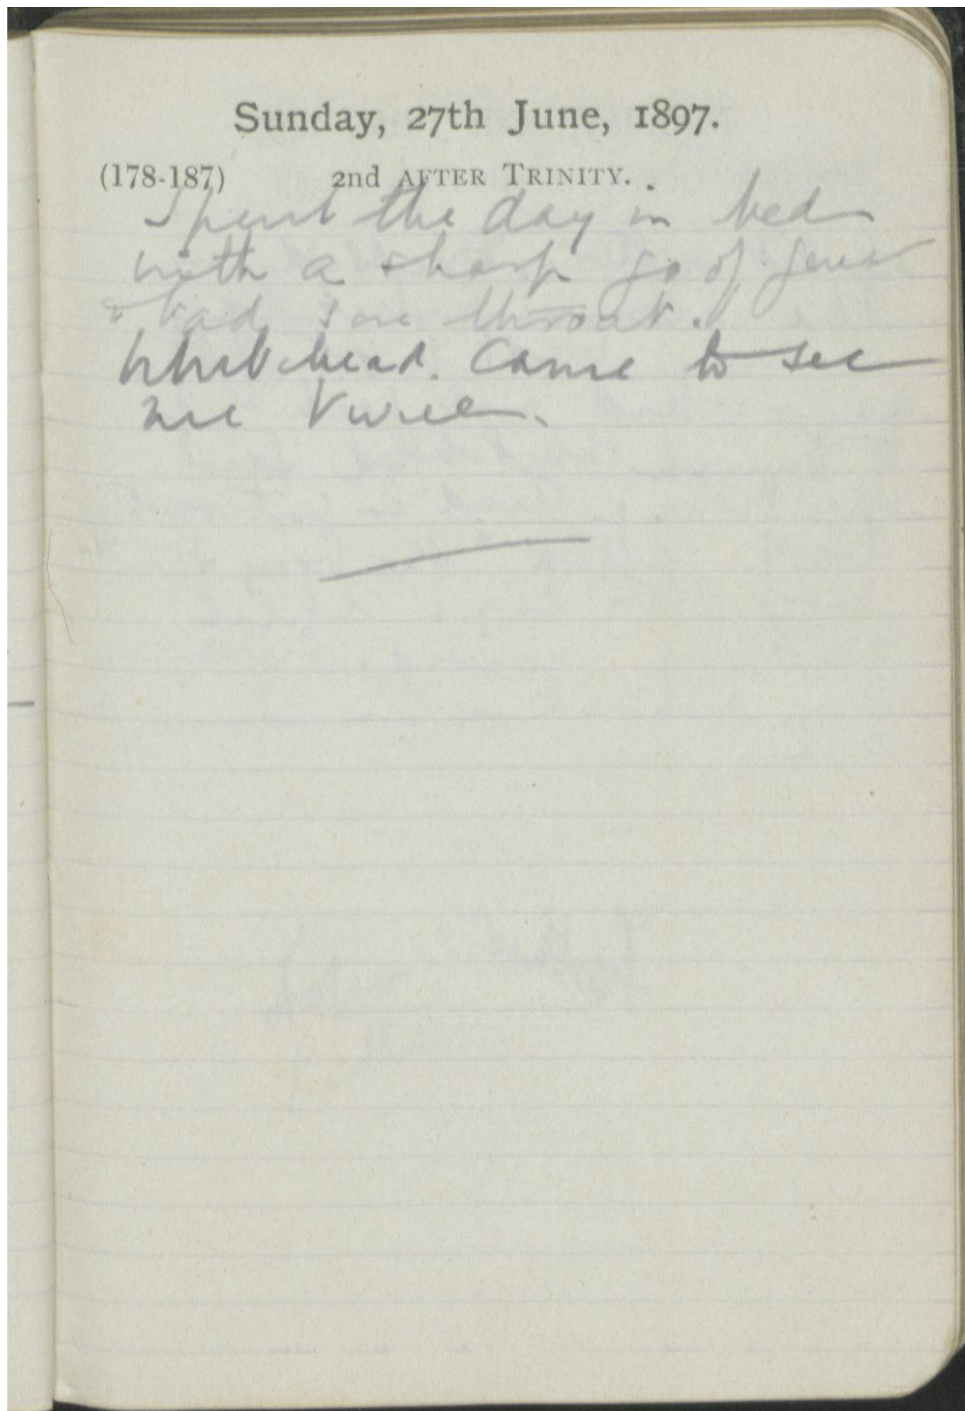 Sunday, 27th June, 1897.
(178-187) 2nd AFTER TRINITY.
Spent the day in bed
with a sharp go of fever
& bad sore throat.
Whitehead. came to see
me twice.